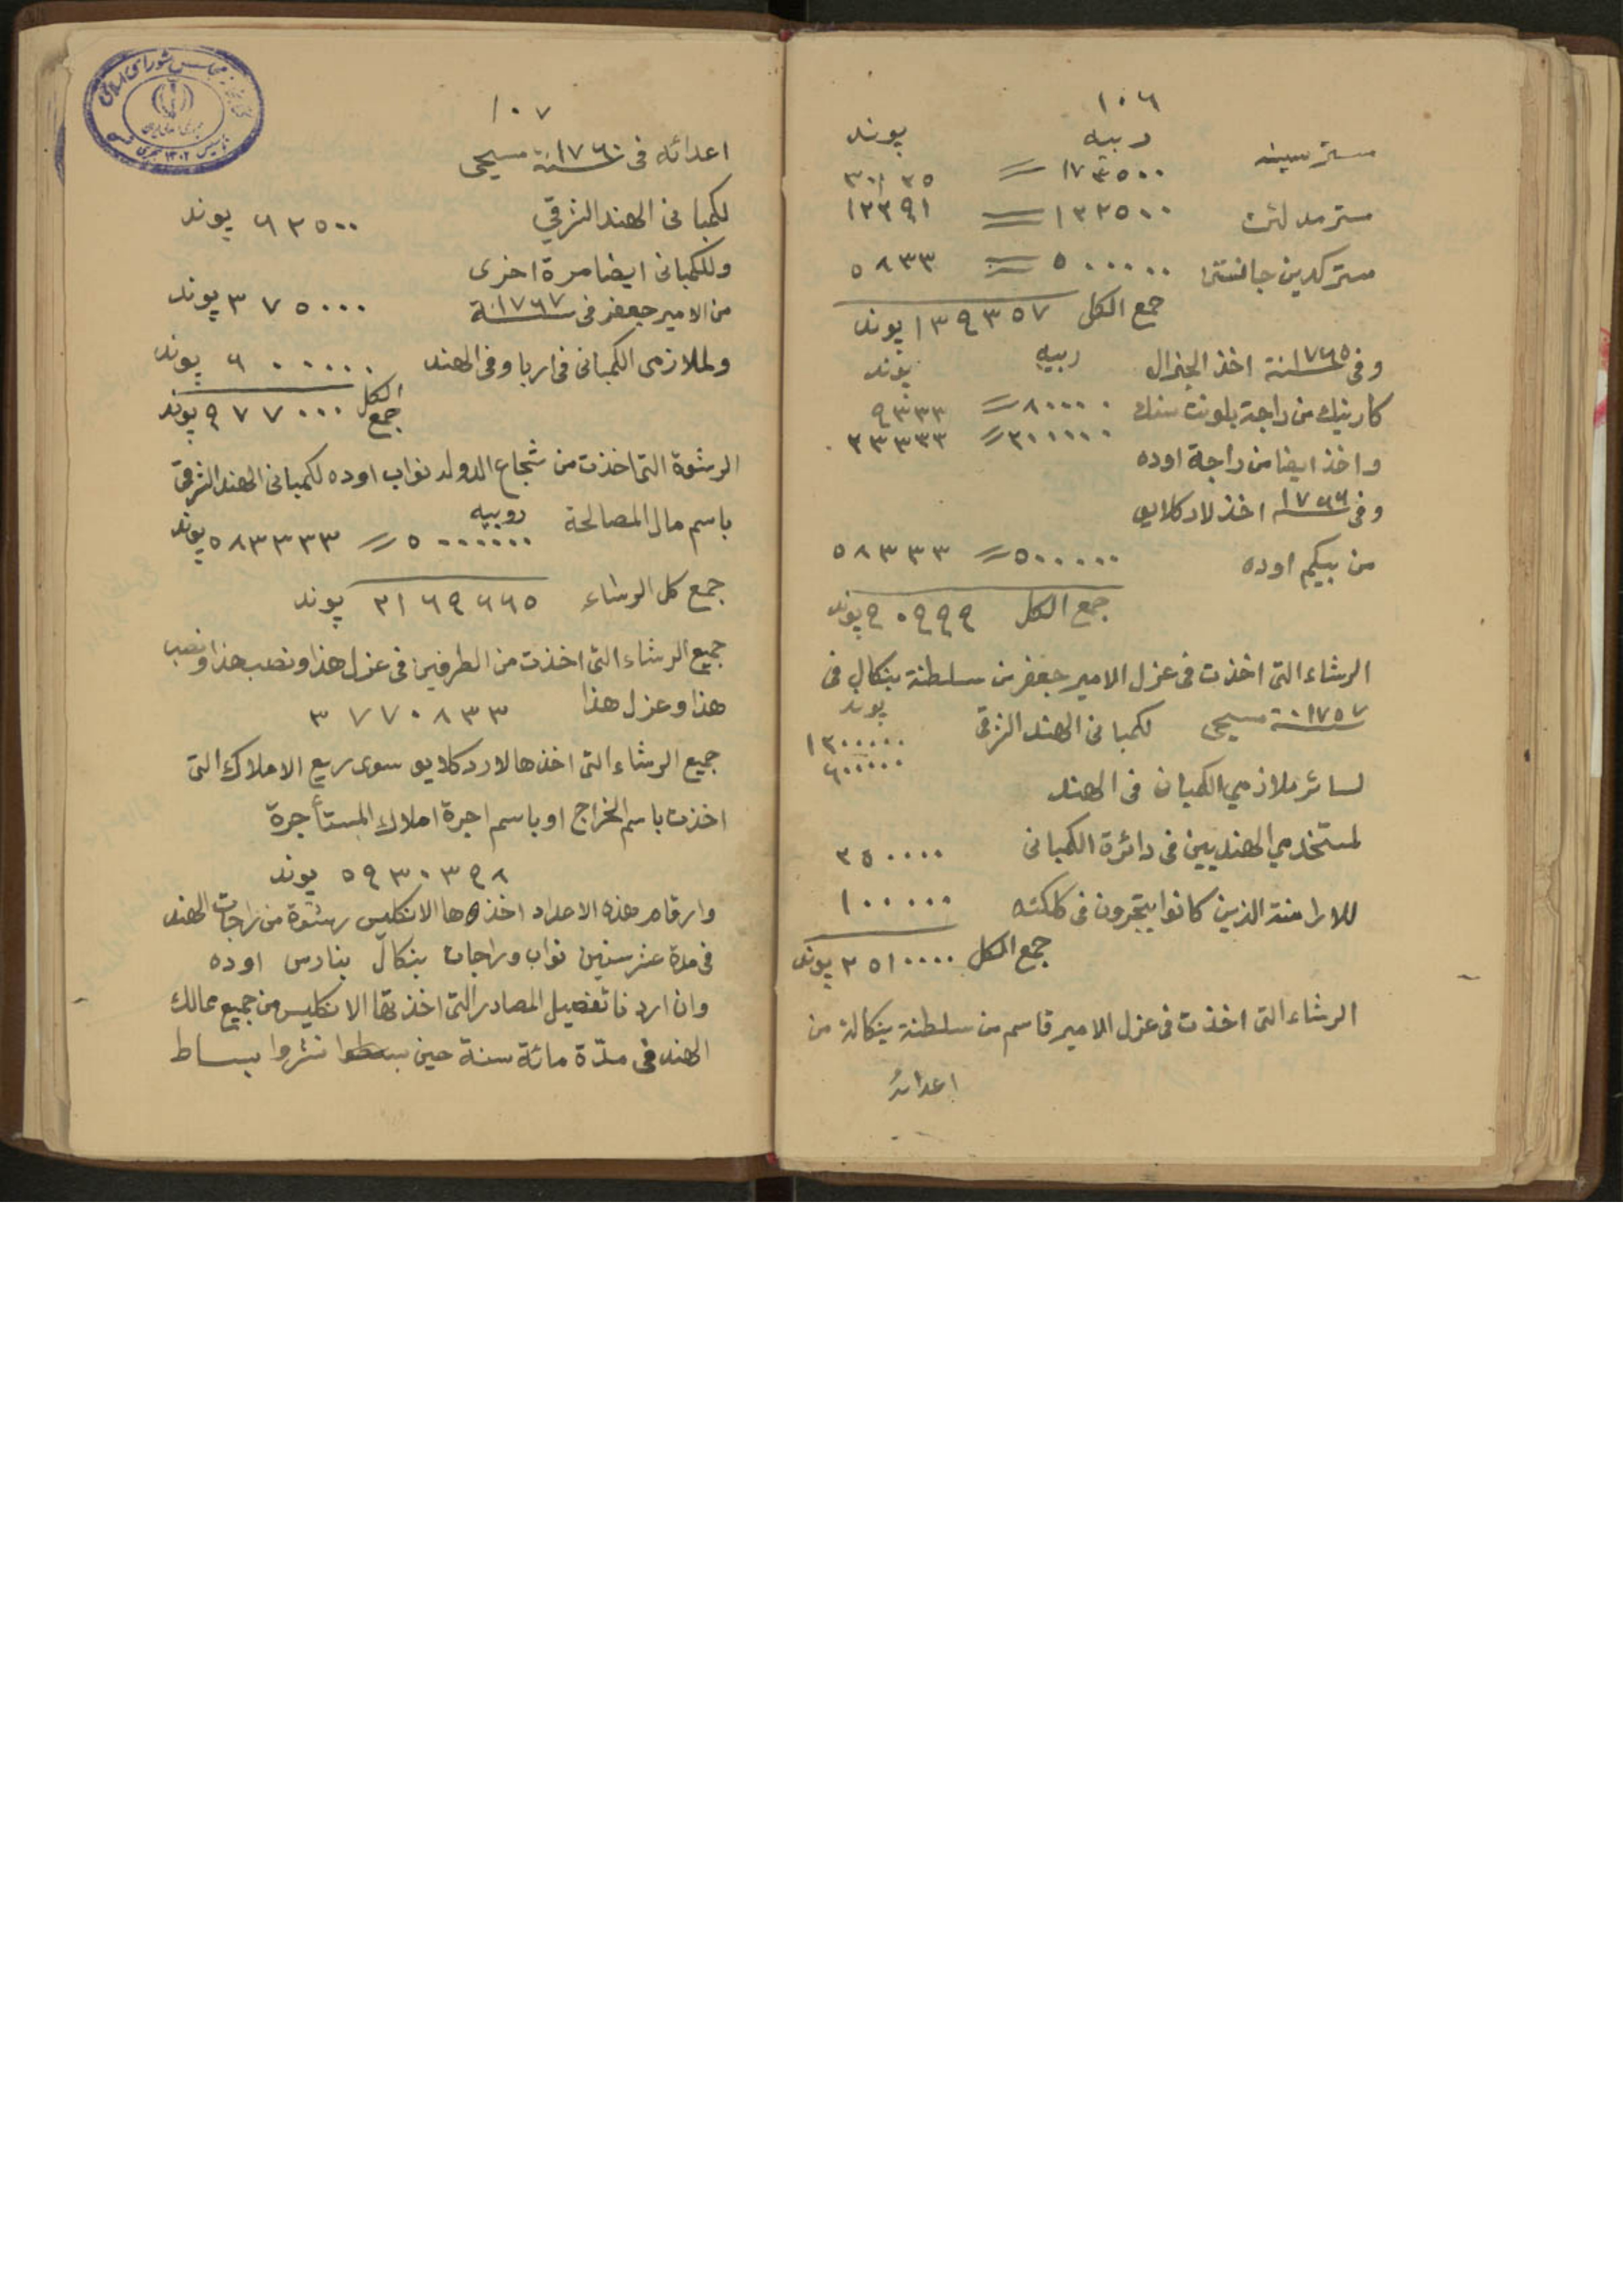 ١٠٦
ربيه پوند
مستر
١٧٢٥٠٠ =
مستر ١٣٢٥٠٠ =
مستر جانستن ٥٠٠٠٠ = ٥٨٣٣
جمع الكل ١٣٩٣٥٧ پوند
وفى سنة ١٧٦٥ اخذ الجنرال ربيه پوند
كارنيك من راجة بلونت سنك ٨٠٠٠٠ = ٩٣٣٣
واخذ ايضا من راجة اوده ٢٠٠٠٠٠ = ٢٣٣٣٣
وفى ١٧٦٦ اخذ لارد كلايو
من بيكم اوده ٥٠٠٠٠٠ = ٥٨٣٣٣
جمع الكل ٩٠٩٩٩ پوند
الرشاء التى اخذت فى عزل الامير جعفر من سلطنة بنكال فى
سنة ١٧٥٧ مسيحى لكمبانى الهند الشرقى پوند ١٢٠٠٠٠٠
لسائر ملازمي الكمبان فى الهند ٦٠٠٠٠٠
لمستخدمي الهنديين فى دائرة الكمبانى ٢٥٠٠٠٠
للارامنة الذين كانوا يتجرون فى كلكته ١٠٠٠٠٠
جمع الكل ٢٥١٠٠٠٠ پوند
الرشاء التى اخذت فى عزل الامير قاسم من سلطنة بنكالة من
اعدائه
١٠٧
اعدائه فى سنة ١٧٦٠ مسيحى
لكمبانى الهند الشرقي ٦٢٥٠٠ پوند
وللكمبانى ايضا مرة اخرى
من الامير جعفر فى سنة ١٧٦٧ ٣٧٥٠٠٠ پوند
ولملازمى الكمبانى فى اربا وفى الهند ٦٠٠٠٠٠ پوند
جمع الكل ٩٧٧٠٠٠ پوند
الرشوة التى اخذت من شجاع الدوله نواب اوده لكمبانى الهند الشرقى
باسم مال المصالحة روبيه ٥٠٠٠٠٠٠ = ٥٨٣٣٣٣ پوند
جمع كل الرشاء ٢١٦٩٦٦٥ پوند
جميع الرشاء التى اخذت من الطرفين فى عزل هذا ونصب هذا ونصب
هذا وعزل هذا ٣٧٧٠٨٣٣
جميع الرشاء التى اخذها لارد كلايو سوى ريع الاملاك التى
اخذت باسم الخراج او باسم اجرة املاك المستأجرة
٥٩٣٠٣٩٨ پوند
وارقام هذه الاعداد اخذها الانكليس رشوة من راجات الهند
فى مدة عشر سنين نواب وراجات بنكال بنارس اوده
وان اردنا تفصيل المصادر التى اخذتها الانكليس من جميع ممالك
الهند فى مدّة مائة سنة حين بسطوا نشروا بساط